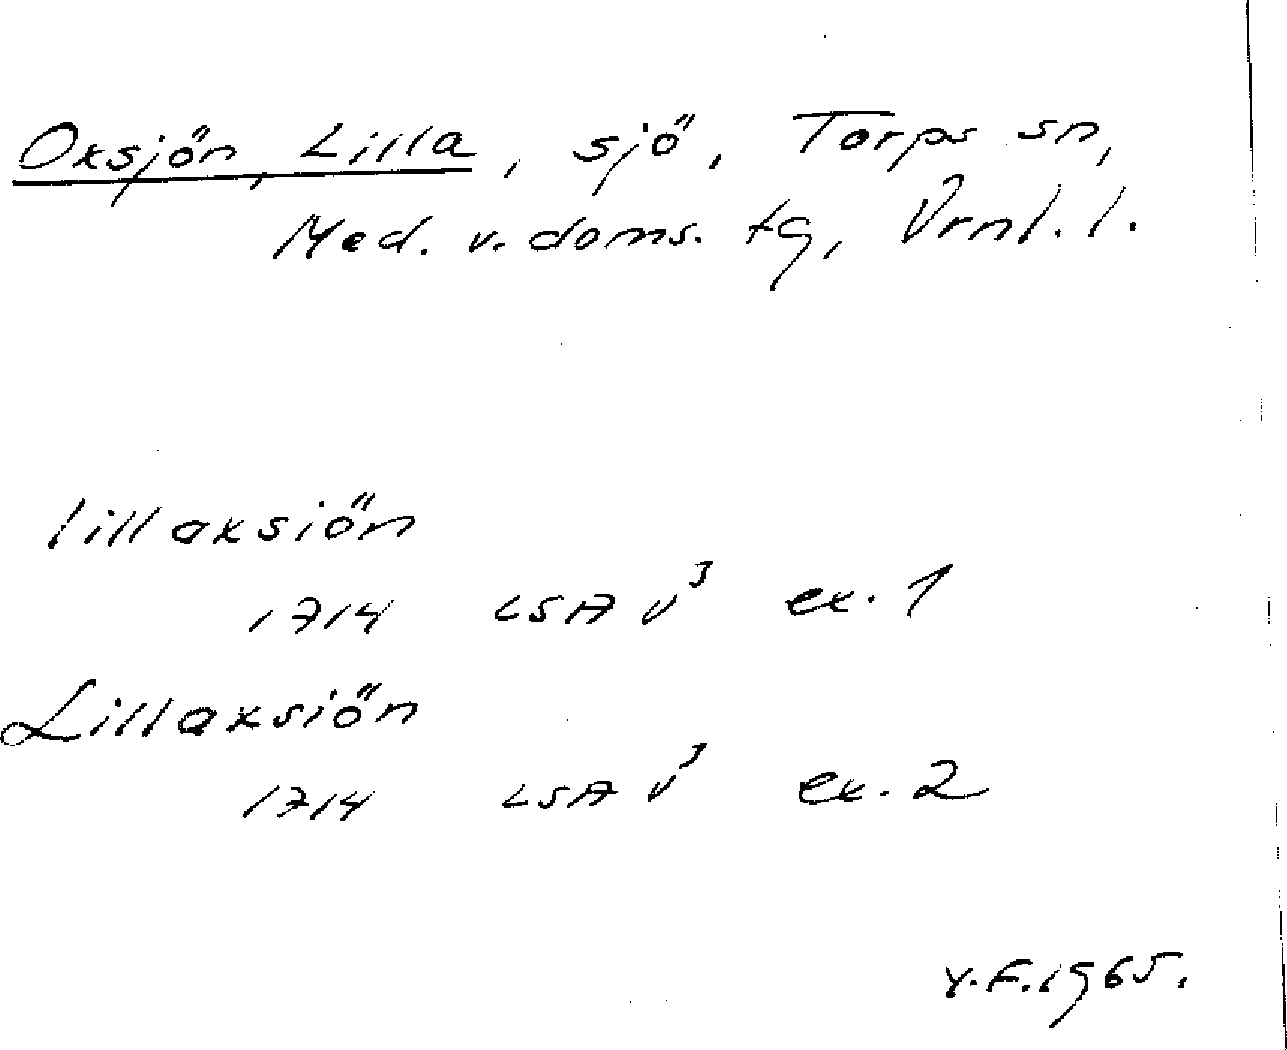 Oxsjön, Lilla, sjö, Torps sn,
Med. v. doms. tg, Vrnl. l.
lillaxsiön
1714 LSA v³ ex. 1
Lillaxsiön
1714 LSA v³ ex. 2
Y.F. 1965.